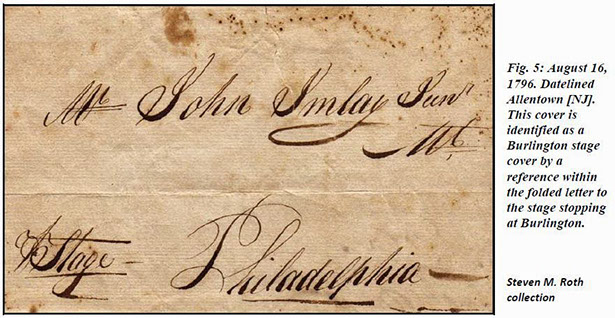 Mr John Imlay Junr
Mt.
Pr Stage
Philadelphia
Fig. 5: August 16,
1796. Datelined
Allentown [NJ].
This cover is
identified as a
Burlington stage
cover by a
reference within
the folded letter to
the stage stopping
at Burlington.
Steven M. Roth
collection